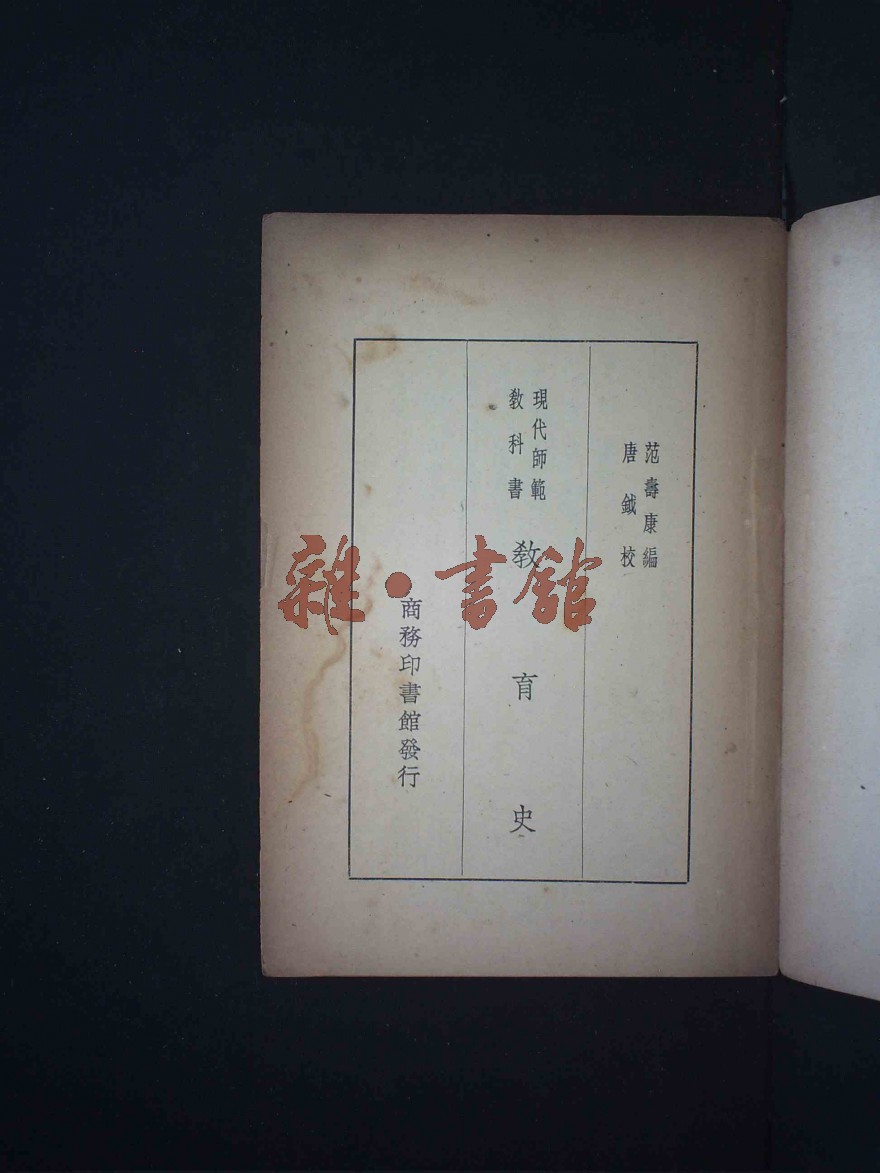 范壽康編
唐鉞校
現代師範
敎科書
敎育史
商務印書館發行
雜·書館